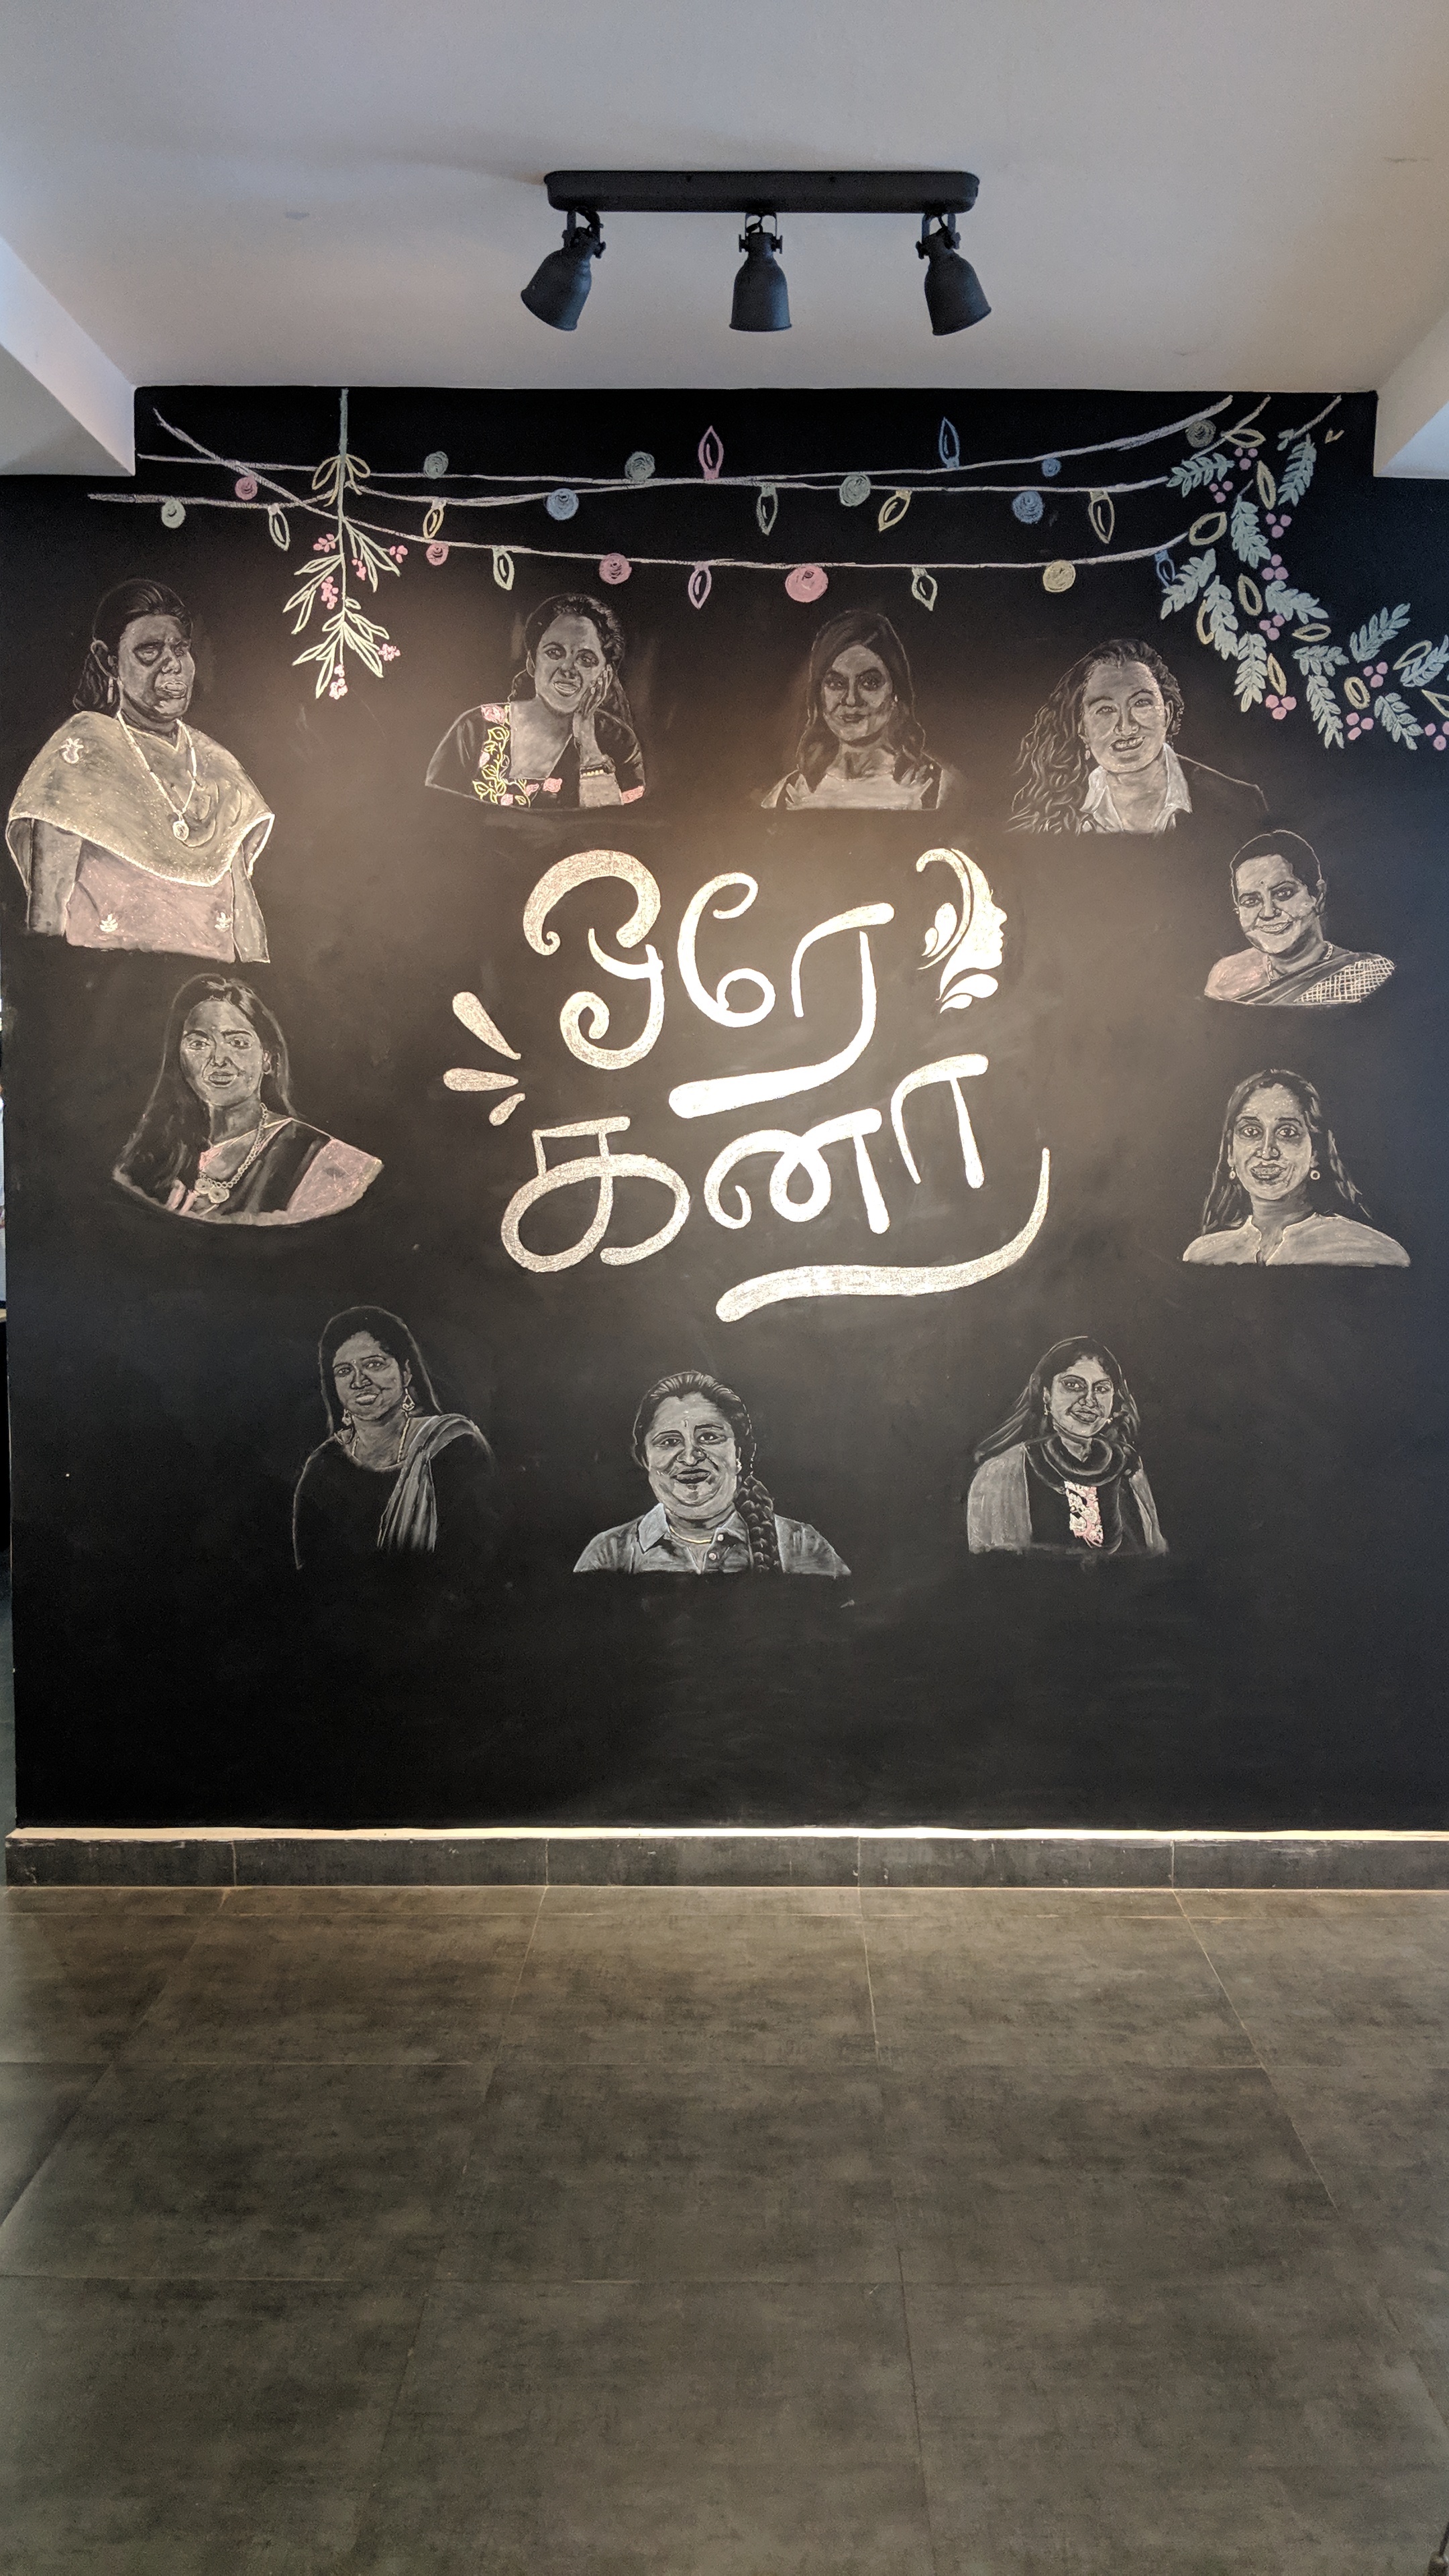 ஒரே
கனா